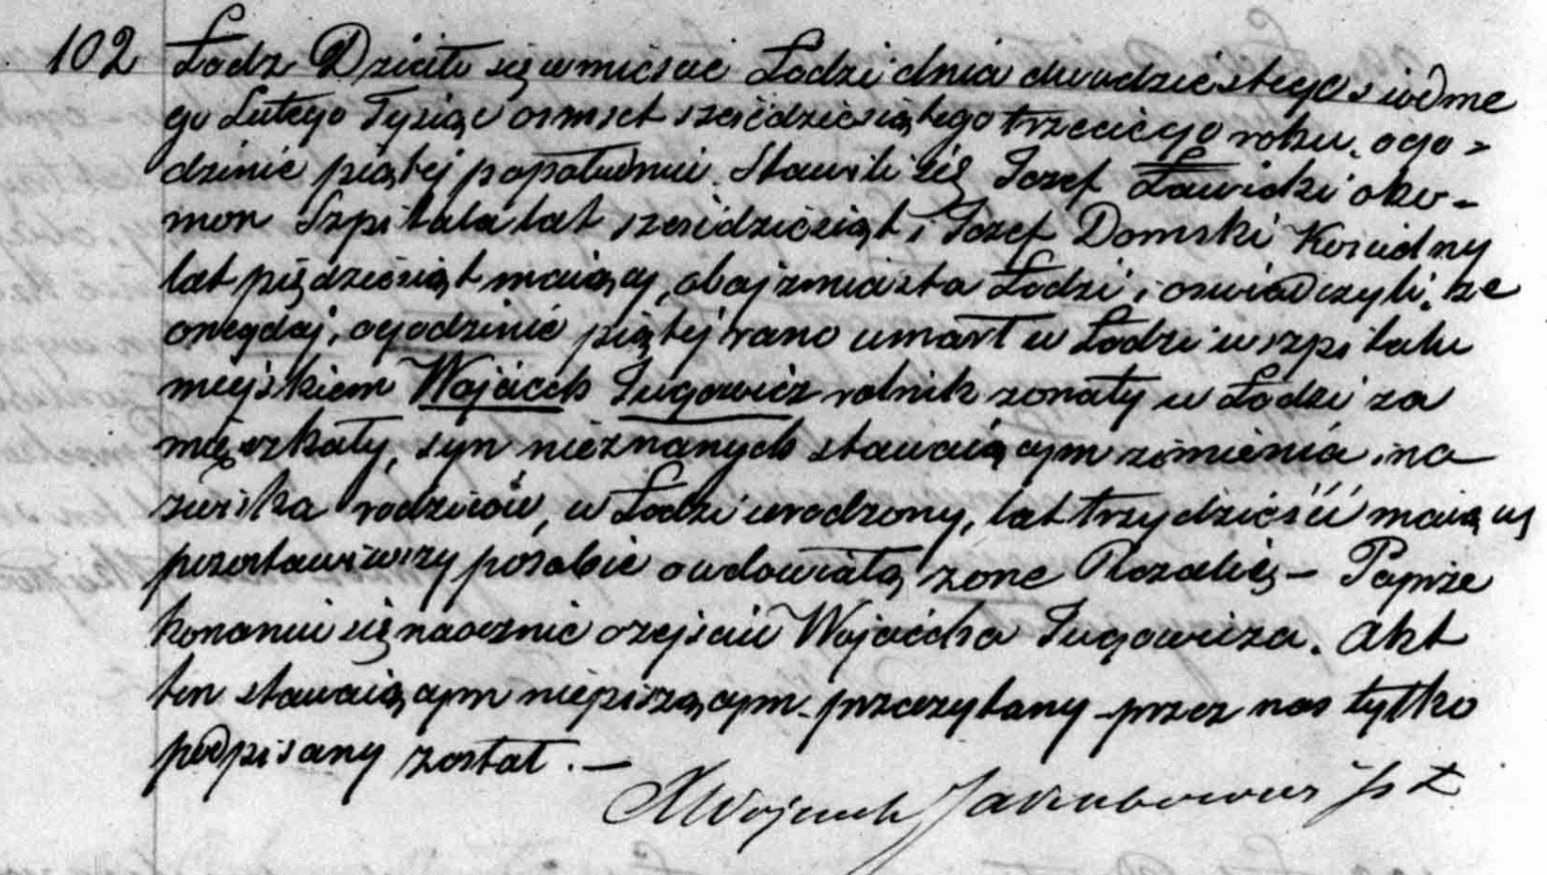 102 Łodz Działo się w mieście Łodzi dnia dwudziestego siódme
go Lutego Tysiąc osmset sześćdziesiątego trzeciego roku, o go=
dzinie piątej popołudniu. Stawili się Jozef Ławicki eko-
mon Szpitala lat sześćdziesiąt, i Jozef Domski Kościelny
lat piędziesiąt maiący, obaj z miasta Łodzi, i oswiadczyli, że
onegdaj, o godzinie piątej rano umarł w Łodzi w szpitalu
miejskiem Wojciech Jugowicz rolnik zonaty w Łodzi za
mięszkały, syn nieznanych stawaiącym z imienia i na
zwiska rodziców, w Łodzi urodzony, lat trzydzieści maiący
pozostawiwszy po sobie owdowiałą zone Rozalię – Poprze
konaniu się naocznie o zejściu Wojciecha Jugowicza. Akt
ten stawaiącym niepiszącym przeczytany przez nas tylko
podpisany został. –
X Wojciech Jakubowicz